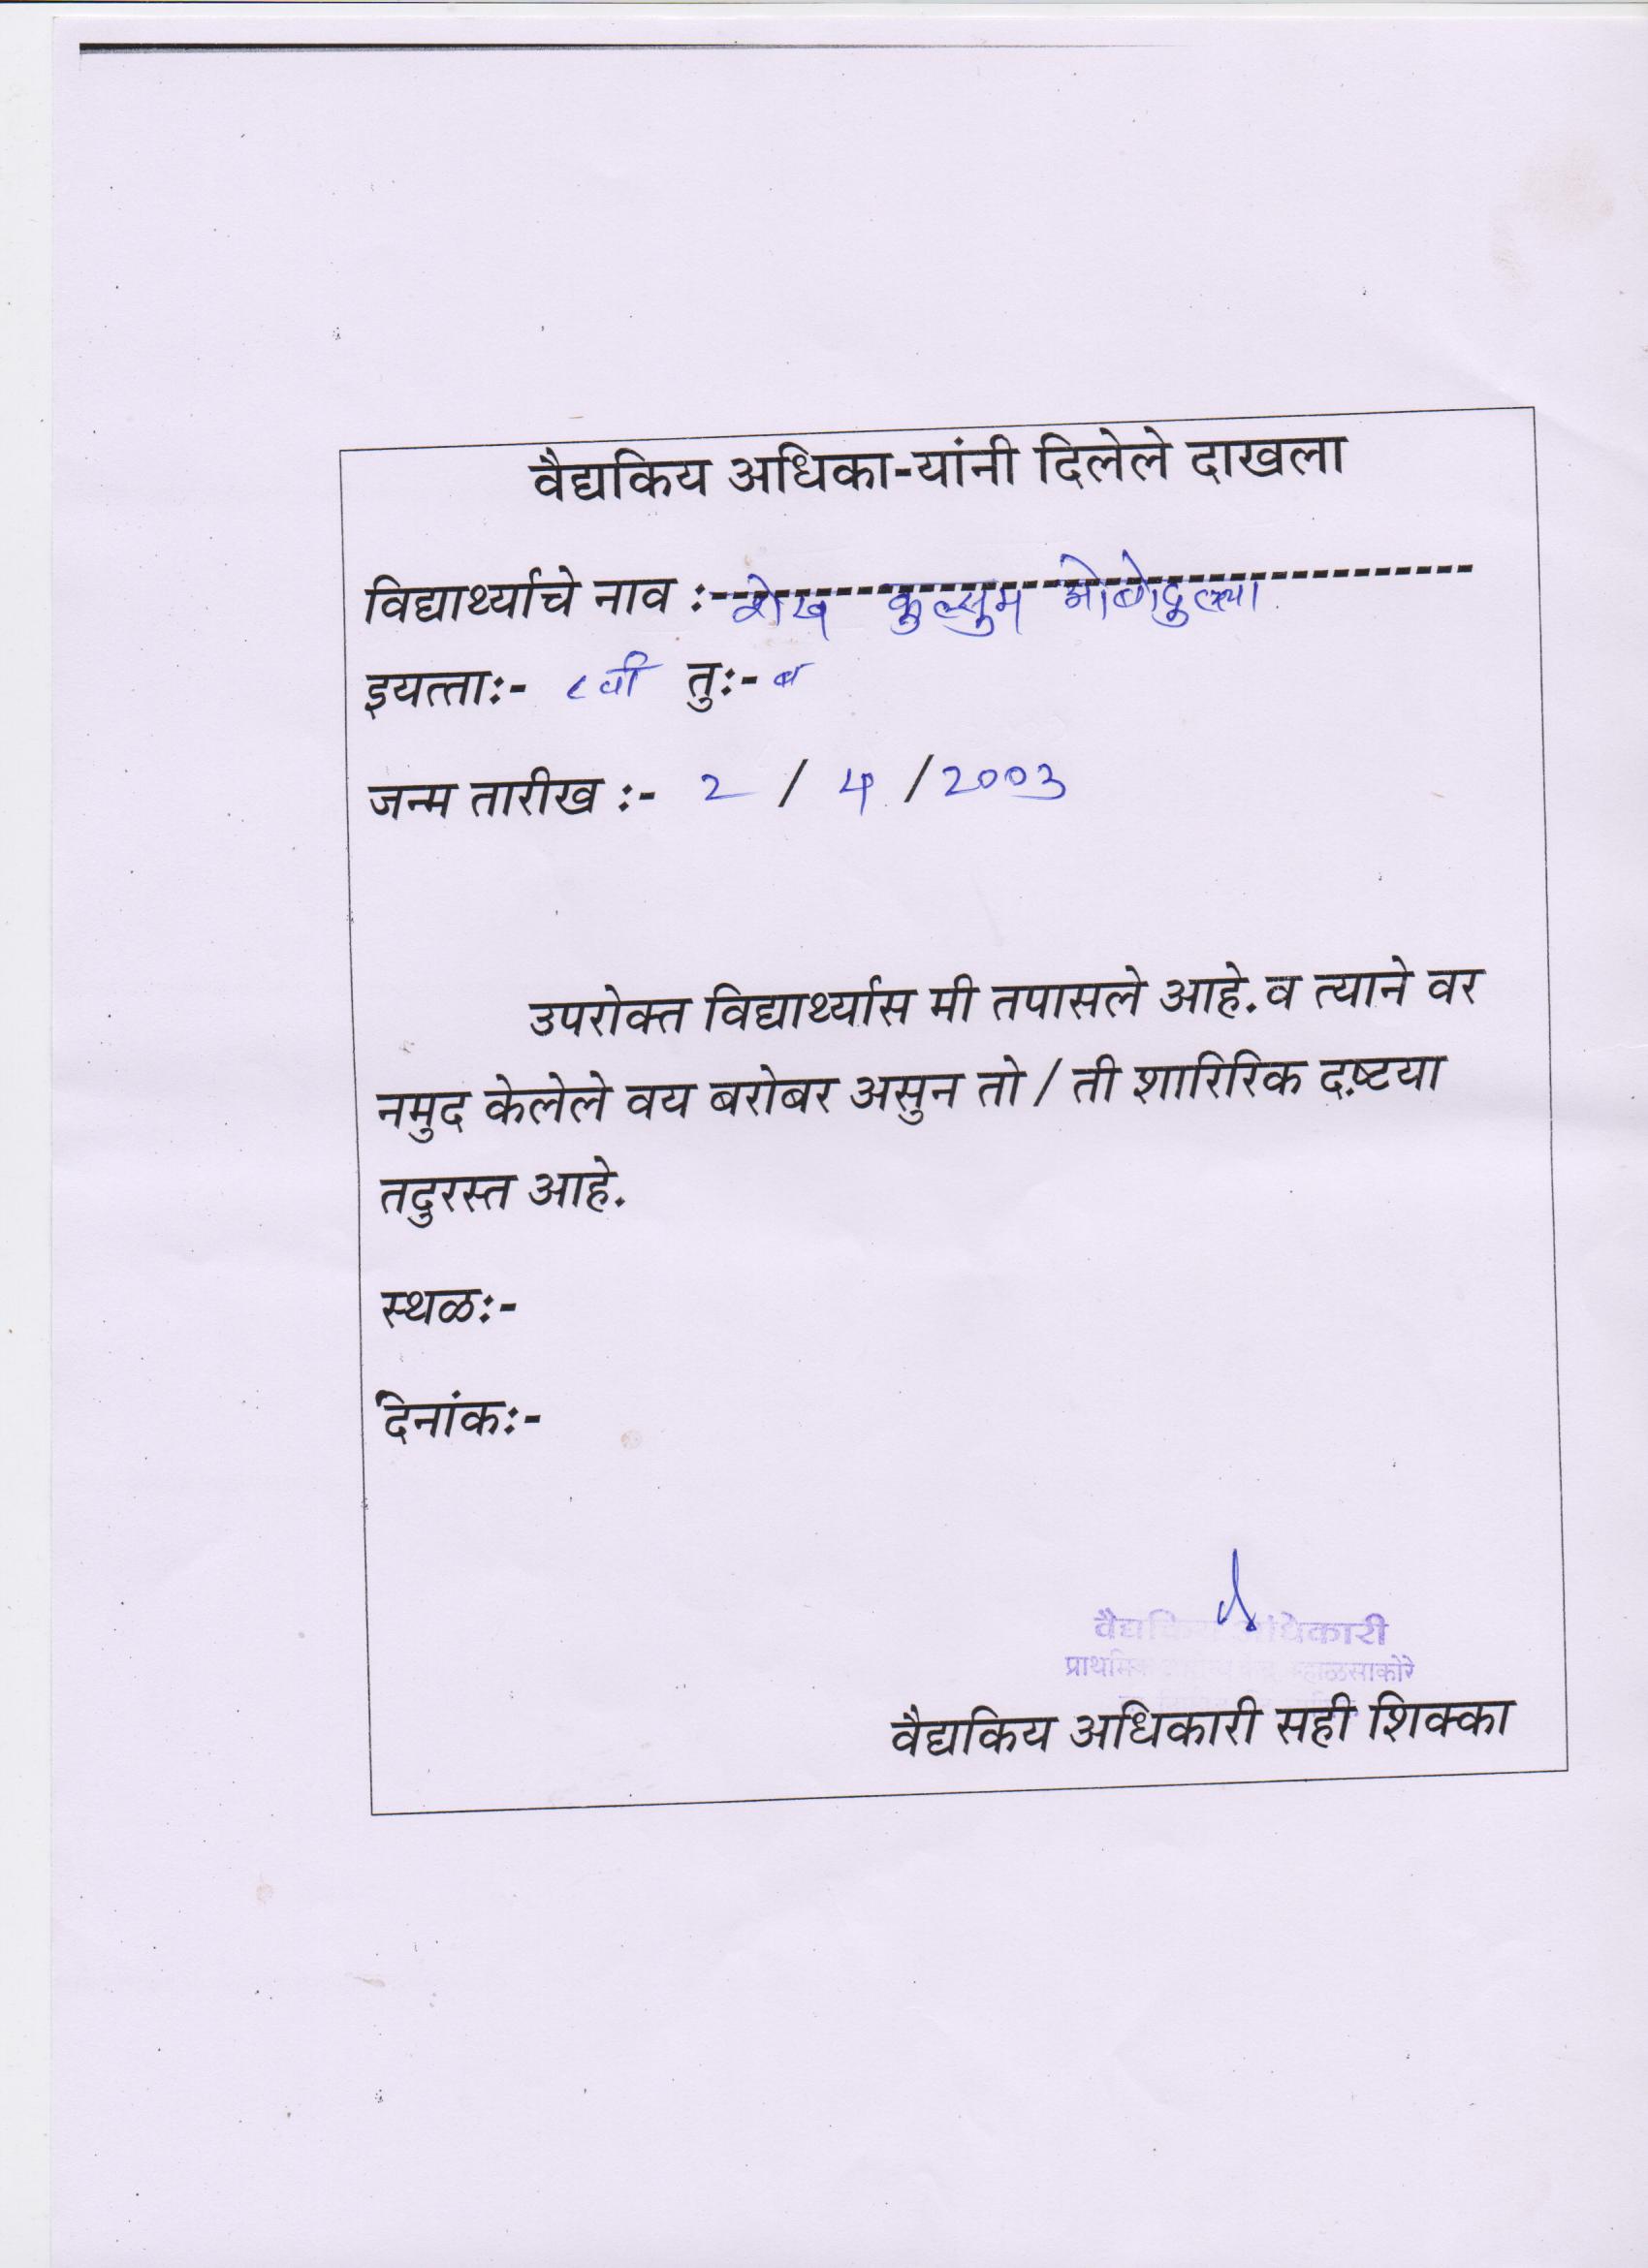 वैद्यकिय अधिका-यांनी दिलेले दाखला
विद्यार्थ्याचे नाव :- शेख कुल्सुम
इयत्ताः- ८वी तुः- ब
जन्म तारीख :- 2 / 4 / 2003
उपरोक्त विद्यार्थ्यास मी तपासले आहे.व त्याने वर
नमुद केलेले वय बरोबर असुन तो / ती शारिरिक दष्टया
तदुरस्त आहे.
स्थळः-
दिनांकः-
वैद्यकिय अधिकारी
प्राथमिक म्हाळसाकोरे
वैद्यकिय अधिकारी सही शिक्का